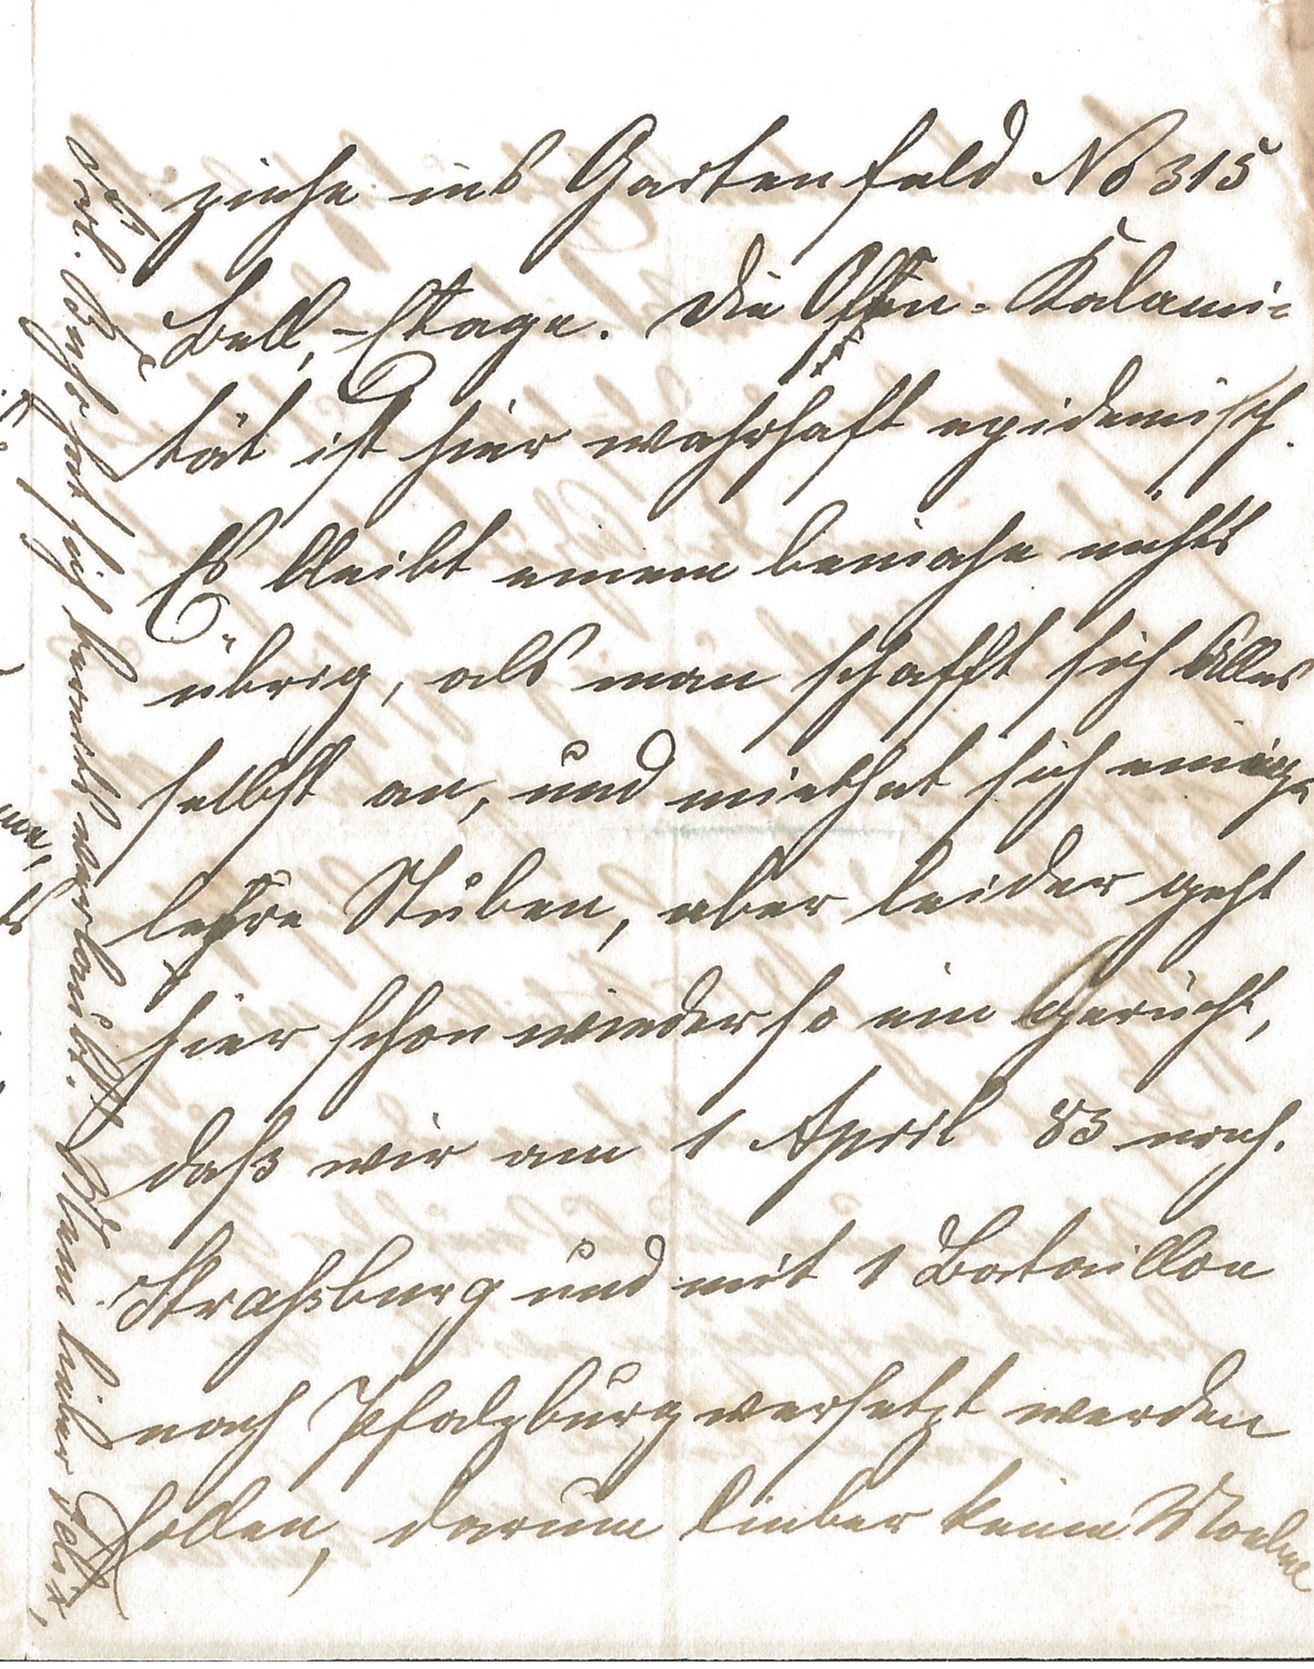 ziehe ins Gartenfeld No 315
Bell-Etage. Die Ofen-Kalami-
tät ist hier wahrhaft epidemisch.
Es bleibt einem beinahe nichts
übrig, als man schafft sich Alles
selbst an, und miethet sich einige
lehre Stuben, aber leider geht
hier schon wieder so ein Gerücht,
daß wir am 1 April 83 nach
Straßburg und mit 1 Bataillon
nach Pfalzburg versetzt werden
sollen, darum lieber keine Moebel
hat sich bereits verlobt. Mein lieber